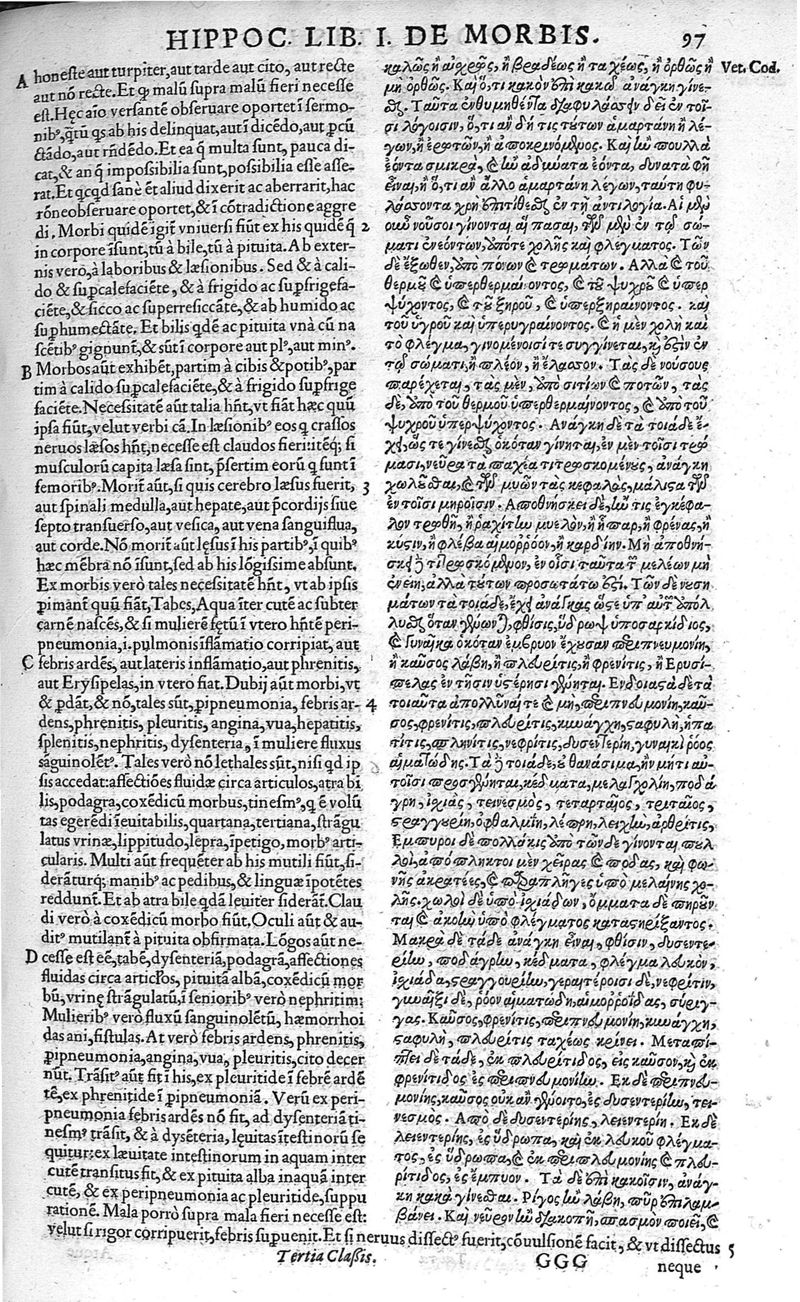 HIPPOC. LIB. I. DE MORBIS. 97
A honeste aut turpiter, aut tarde aut cito, aut recte
aut nō recte. Et q̃ malū supra malū fieri necesse
est. Hęc aīo versantē obseruare oportet ī sermo-
nibꝰ, q̃tū qs ab his delinquat, aut ī dicēdo, aut ꝑcū
ctādo, aut rñdēdo. Et ea q̃ multa sunt, pauca di-
cat, & an q̃ impossibilia sunt, possibilia esse asse-
rat. Et qcqd sanè ēt aliud dixerit ac aberrarit, hac
rōne obseruare oportet, & ī cōtradictione aggre
di. Morbi quidē igit̃ vniuersi fiūt ex his quidē q̃ 2
in corpore īsunt, tū à bile, tū à pituita. Ab exter-
nis verò, à laboribus & læsionibus. Sed & à cali-
do & suꝑcalefaciēte, & à frigido ac suꝑfrigefa-
ciēte, & sicco ac superresiccāte, & ab humido ac
suꝑhumectāte. Et bilis qdē ac pituita vnà cū na
scētibꝰ gignunt̃, & sūt ī corpore aut plꝰ, aut minꝰ.
B Morbos aūt exhibēt, partim à cibis & potibꝰ, par
tim à calido suꝑcalefaciēte, & à frigido suꝑfrige
faciēte. Necessitatē aūt talia hñt, vt fiāt hæc quū
ipsa fiūt, velut verbi cā. In læsionibꝰ eos q̃ crassos
neruos læsos hñt, necesse est claudos fieri: itēq; si
musculorū capita læsa sint, p̃sertim eorū q̃ sunt ī
femoribꝰ. Morit̃ aūt, si quis cerebro læsus fuerit, 3
aut spinali medulla, aut hepate, aut p̃cordijs siue
septo transuerso, aut vesica, aut vena sanguiflua,
aut corde. Nō morit̃ aūt lęsus ī his partibꝰ, ī quibꝰ
hæc mēbra nō īsunt, sed ab his lōgissime absunt.
Ex morbis verò tales necessitatē hñt, vt ab ipsis
ꝑimant̃ quū fiāt, Tabes, Aqua īter cutē ac subter
carnē nascēs, & si mulierē fętū ī vtero hñtē peri-
pneumonia, i. pulmonis īflāmatio corripiat, aut
C febris ardēs, aut lateris inflāmatio, aut phrenitis,
aut Erysipelas, in vtero fiat. Dubij aūt morbi, vt
& ꝑdāt, & nō, tales sūt, ꝑipneumonia, febris ar- 4
dens, phrenitis, pleuritis, angina, vua, hepatitis,
splenitis, nephritis, dysenteria, ī muliere fluxus
sāguinolētꝰ. Tales verò nō lethales sūt, nisi qd ip
sis accedat: affectiōes fluidæ circa articulos, atra bi
lis, podagra, coxēdicū morbus, tinesmꝰ, q̃ ē volū
tas egerēdi īeuitabilis, quartana, tertiana, strāgu
latus vrinæ, lippitudo, lepra, īpetigo, morbꝰ arti-
cularis. Multi aūt frequēter ab his mutili fiūt, si-
derāturq; manibꝰ ac pedibus, & linguæ īpotētes
reddunt̃. Et ab atra bile qdā leuiter siderāt̃. Clau
di verò à coxēdicū morbo fiūt. Oculi aūt & au-
ditꝰ mutilant̃ à pituita obfirmata. Lōgos aūt ne-
D cesse est eē, tabē, dysenteriā, podagrā, affectiones
fluidas circa articĺos, pituitā albā, coxēdicū mor
bū, vrinę strāgulatū, ī senioribꝰ verò nephritim:
Mulieribꝰ verò fluxū sanguinolētū, hæmorrhoi
das ani, fistulas. At verò febris ardens, phrenitis,
ꝑipneumonia, angina, vua, pleuritis, cito decer
nūt. Trāsitꝰ aūt fit ī his, ex pleuritide ī febrē ardē
tē, ex phrenitide ī ꝑipneumoniā. Verū ex peri-
pneumonia febris ardēs nō fit, ad dysenteriā ti-
nesmꝰ trāsit, & à dysēteria, lęuitas ītestinorū se
quitur: ex læuitate intestinorum in aquam inter
cutē transitus fit, & ex pituita alba inaquā inter
cutē, & ex peripneumonia ac pleuritide, suppu
rationē. Mala porrò supra mala fieri necesse est:
velut si rigor corripuerit, febris suꝑuenit. Et si neruus dissectꝰ fuerit, cōuulsionē facit, & vt dissectus 5
Vet. Cod.
καλῶς ἢ αἰσχρῶς, ἢ βραδέως ἢ ταχέως, ἢ ὀρθῶς ἢ
μὴ ὀρθῶς. Καὶ ὅ, τι κακὸν ἐπὶ κακῷ ἀνάγκη γίνε-
σθαι. Ταῦτα ἐνθυμηθέντα διαφυλάσσειν δεῖ ἐν τοῖ-
σι λόγοισιν, ὅ, τι ἂν δή τις τούτων ἁμαρτάνῃ ἢ λέ-
γων, ἢ ἐρωτῶν, ἢ ἀποκρινόμενος. Καὶ ἢν πουλλὰ
ἐόντα σμικρὰ, καὶ ἢν ἀδύνατα ἐόντα, δυνατὰ φῇ
εἶναι, ἢ ὅ, τι ἂν ἄλλο ἁμαρτάνῃ λέγων, ταύτῃ φυ-
λάσσοντα χρὴ ἐπιτίθεσθαι ἐν τῇ ἀντιλογίᾳ. Αἱ μὲν
οὖν νοῦσοι γίνονται αἱ πᾶσαι, τῶν μὲν ἐν τῷ σώ-
ματι ἐνεόντων, ἀπό τε χολῆς καὶ φλέγματος. Τῶν
δὲ ἔξωθεν, ἀπὸ πόνων καὶ τρωμάτων. Ἀλλὰ καὶ τοῦ
θερμοῦ καὶ ὑπερθερμαίνοντος, καὶ τοῦ ψυχροῦ καὶ ὑπερ
ψύχοντος, καὶ τοῦ ξηροῦ, καὶ ὑπερξηραίνοντος. καὶ
τοῦ ὑγροῦ καὶ ὑπερυγραίνοντος. Καὶ ἡ μὲν χολὴ καὶ
τὸ φλέγμα, γινομένοισί τε συγγίνεται, καὶ ἔστιν ἐν
τῷ σώματι, ἢ πλέον, ἢ ἔλασσον. Τὰς δὲ νούσους
παρέχεται, τὰς μὲν, ἀπὸ σιτίων καὶ ποτῶν, τὰς
δὲ, ἀπὸ τοῦ θερμοῦ ὑπερθερμαίνοντος, καὶ ἀπὸ τοῦ
ψυχροῦ ὑπερψύχοντος. Ἀνάγκη δὲ τὰ τοιάδε ἔ-
χει, ὥς τε γίνεσθαι ὁκόταν γίνηται, ἐν μὲν τοῖσι τρώ
μασι, νεῦρα τὰ παχέα τιτρωσκομένους, ἀνάγκη
χωλοῦσθαι, καὶ τῶν μυῶν τὰς κεφαλὸς, μάλιστα τῶν
ἐν τοῖσι μηροῖσιν. Ἀποθνήσκει δὲ, ἤν τις ἐγκέφα-
λον τρωθῇ, ἢ ῥαχίτην μυελὸν, ἢ ἧπαρ, ἢ φρένας, ἢ
κύστιν, ἢ φλέβα αἱμορρόον, ἢ καρδίην. Μὴ ἀποθνή-
σκει δὲ τιτρωσκόμενον, ἐν οἷσι ταῦτα τῶν μελέων μὴ
ἔνειη, ἀλλὰ τούτων προσωτάτω ἐστί. Τῶν δὲ νοση
μάτων τὰ τοιάδε, ἔχει ἀνάγκας ὥς ὑπ' αὐτῶν ἀπόλ
λυσθαι ὅταν γένωνται, φθίσις, ὕδρωψ ὑποσαρκίδιος,
καὶ γυναῖκα ὁκόταν ἔμβρυον ἔχουσαν περιπνευμονίη,
ἢ καῦσος λάβῃ, ἢ πλευρῖτις, ἢ φρενῖτις, ἢ Ἐρυσί-
πελας ἐν τῇσιν ὑστέρῃσι γένηται. Ἐνδοιαστὰ δὲ τὰ
τοιαῦτα ἀπολλύναι τε καὶ μὴ, περιπνευμονίην, καῦ-
σος, φρενῖτις, πλευρῖτις, κυνάγχη, σταφυλὴ, ἡπα
τῖτις, σπληνῖτις, νεφρῖτις, δυσεντερίη, γυναικὶ ῥόος
αἱματώδης. Τὰ δὲ τοιάδε, οὐ θανάσιμα, ἢν μή τι αὐ-
τοῖσι προσγένηται, κέδματα, μελαγχολίη, ποδά
γρη, ἰσχιὰς, τεινεσμὸς, τεταρταῖος, τριταῖος,
στραγγουρίη, ὀφθαλμίη, λέπρη, λειχὴν, ἀρθρῖτις,
Ἔμπυροι δὲ πολλάκις ἀπὸ τῶν δε γίνονται πολ
λοὶ, ἀπόπληκτοι μὲν χεῖρας καὶ πόδας, καὶ φω-
νῆς ἀκρατέες, καὶ παραπλῆγες ὑπὸ μελαίνης χο-
λῆς. χωλοὶ δὲ ὑπὸ ἰσχιάδων, ὄμματα δὲ πηροῦν
ται καὶ ἀκοὴν ὑπὸ φλέγματος καταστηρίξαντος.
Μακρὰ δὲ τάδε ἀνάγκη εἶναι, φθίσιν, δυσεντε-
ρίην, ποδάγρην, κέδματα, φλέγμα λευκὸν,
ἰσχιάδα, στραγγουρίην, γεραιτέροισι δὲ, νεφρῖτιν,
γυναιξὶ δὲ, ῥόον αἱματώδη, αἱμορροΐδας, σύριγ-
γας. Καῦσος, φρενῖτις, περιπνευμονίη, κυνάγχη,
σταφυλὴ, πλευρῖτις ταχέως κρίνει. Μεταπί-
πτει δὲ τάδε, ἐκ πλευρίτιδος, εἰς καῦσον, καὶ ἐκ
φρενίτιδος ἐς περιπνευμονίην. Ἐκ δὲ περιπνευ-
μονίης, καῦσος οὐκ ἂν γένοιτο, ἐς δυσεντερίην, τει-
νεσμός. Ἀπὸ δὲ δυσεντερίης, λειεντερίη. Ἐκ δὲ
λειεντερίης, ἐς ὕδρωπα, καὶ ἐκ λευκοῦ φλέγμα-
τος, ἐς ὕδρωπα, καὶ ἐκ περιπλευμονίης καὶ πλευ-
ρίτιδος, ἐς ἔμπυον. Τὰ δὲ ἐπὶ κακοῖσιν, ἀνάγ-
κη κακὰ γίνεσθαι. Ρῖγος ἢν λάβῃ, πῦρ ἐπιλαμ-
βάνει. Καὶ νεῦρον ἢν διακοπῇ, σπασμὸν ποιεῖ, καὶ
Tertia Classis. GGG neque